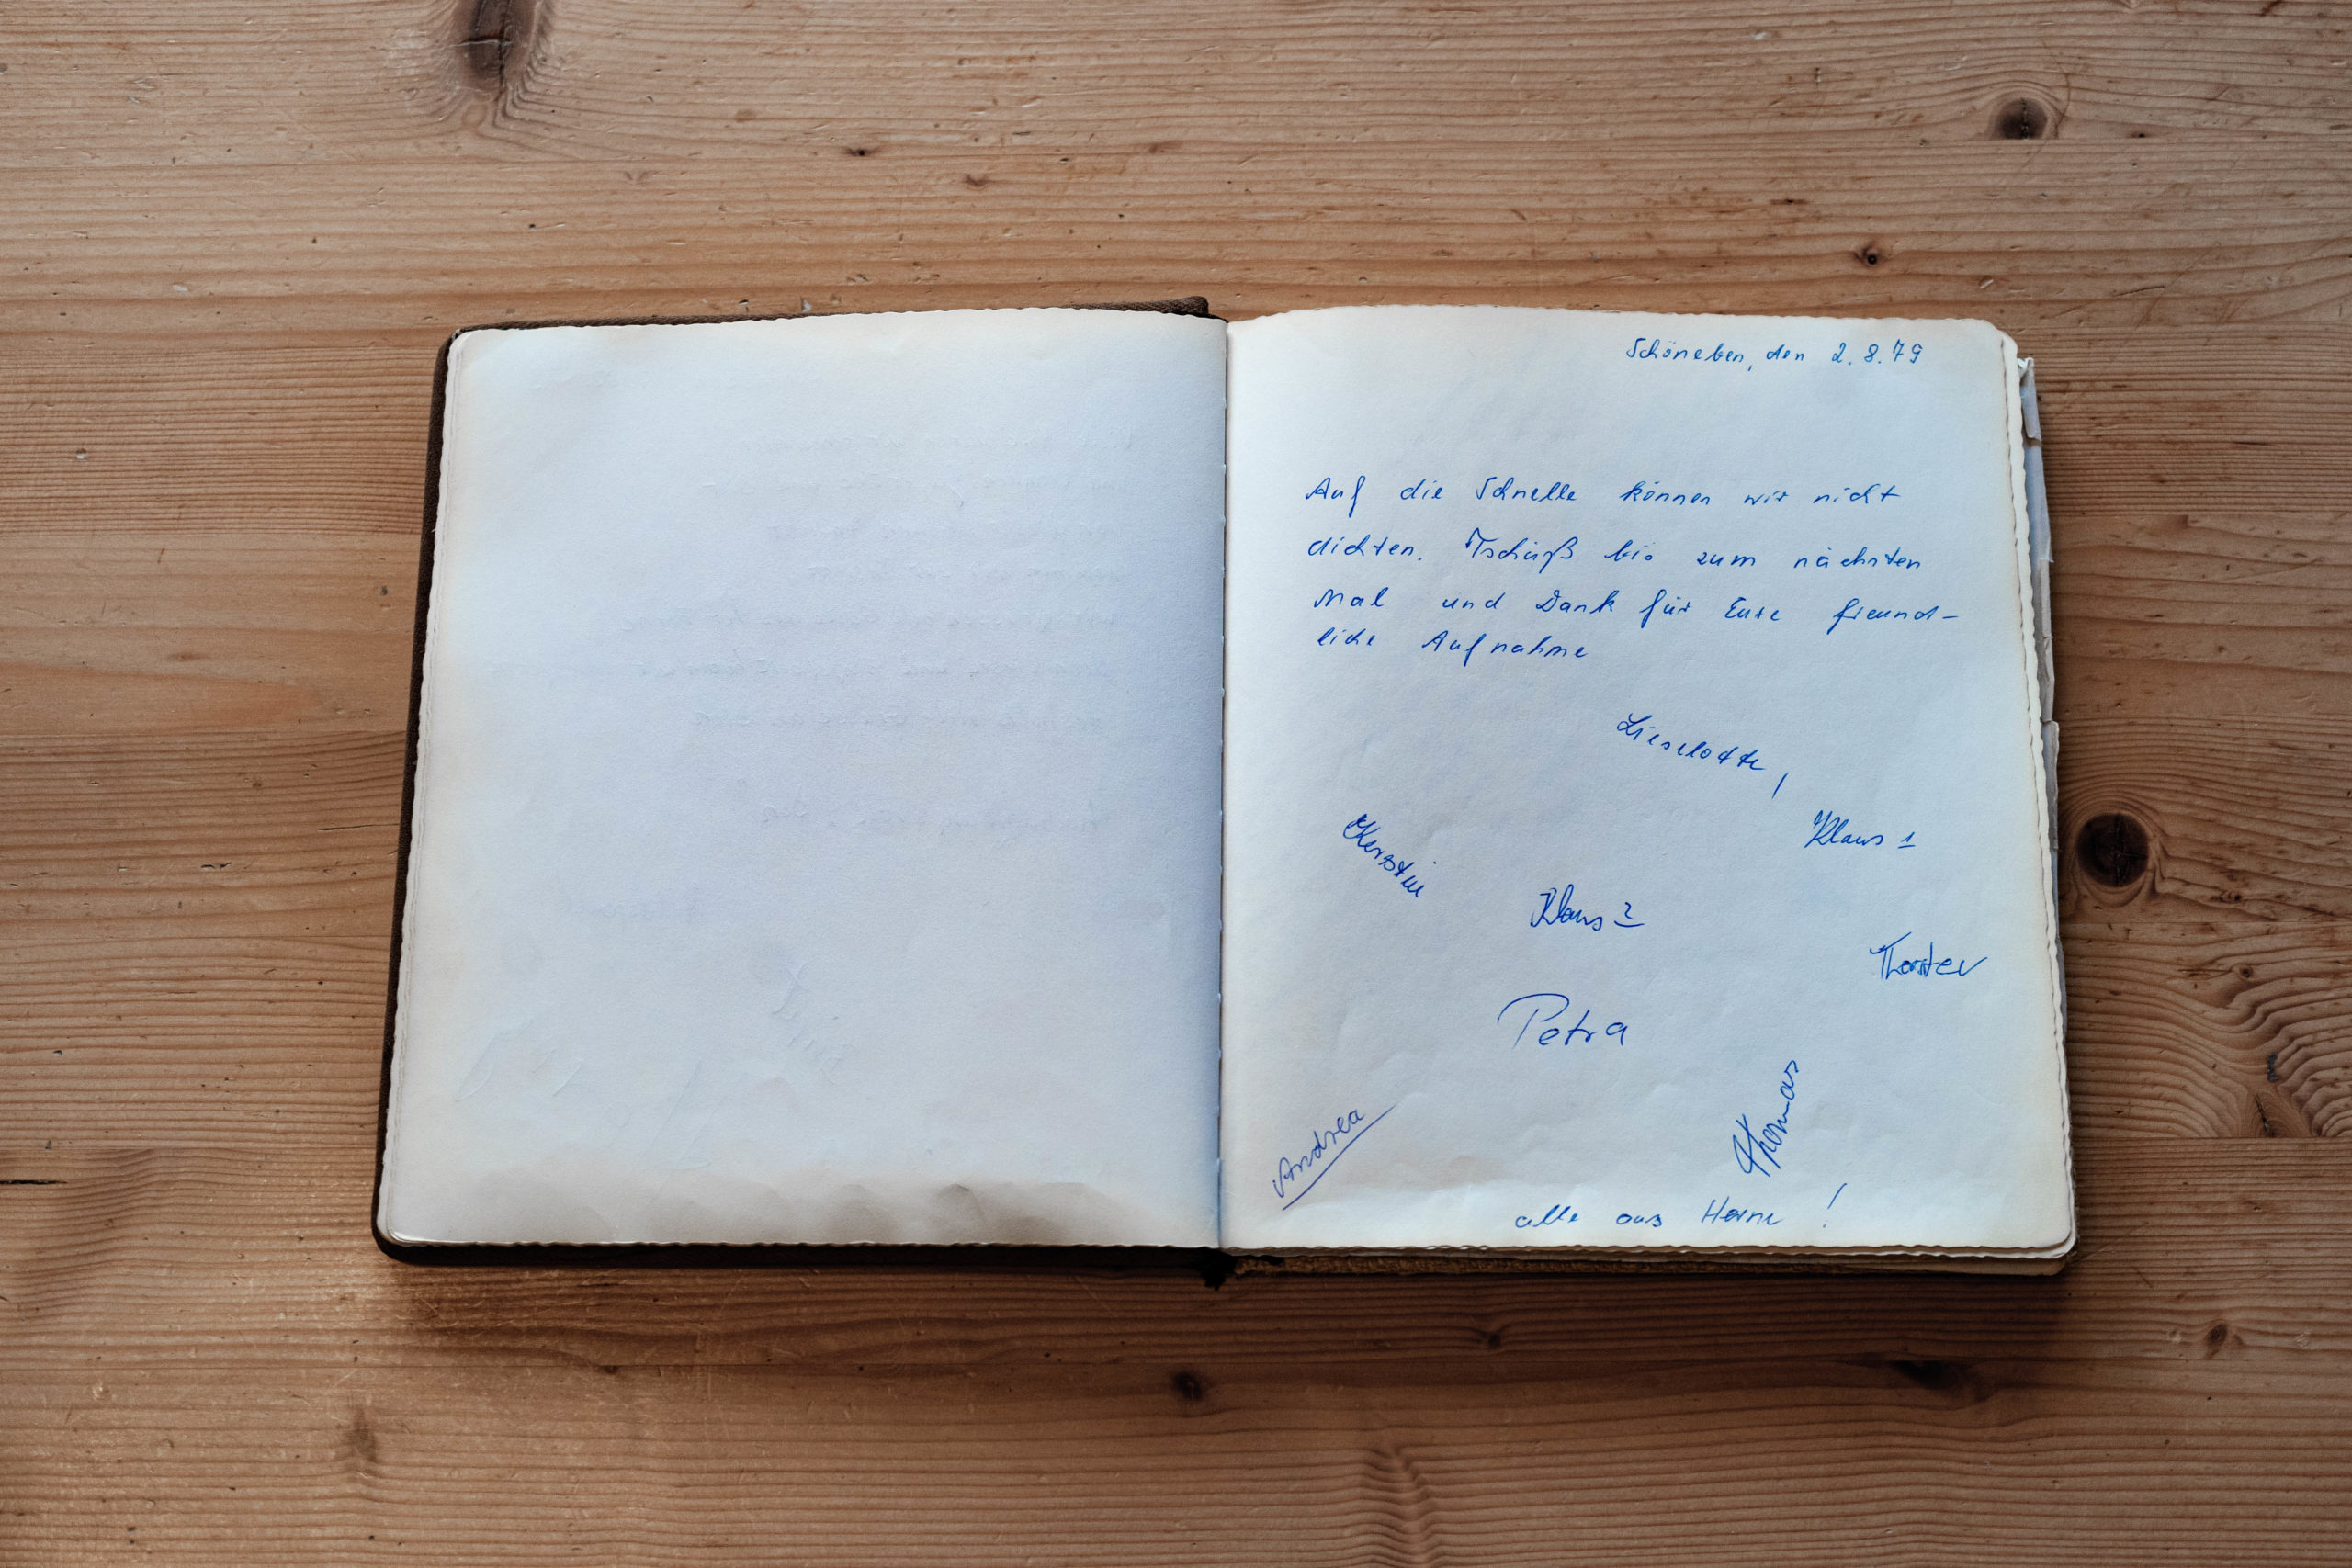 Schöneben, den 2.8.79
Auf die Schnelle können wir nicht
dichten. Tschüß bis zum nächsten
Mal und Dank für Eure freund-
liche Aufnahme
Lieselotte,
Kerstin
Klaus 1
Klaus 2
Thorsten
Petra
Thomas
Andrea
alle aus Herne!